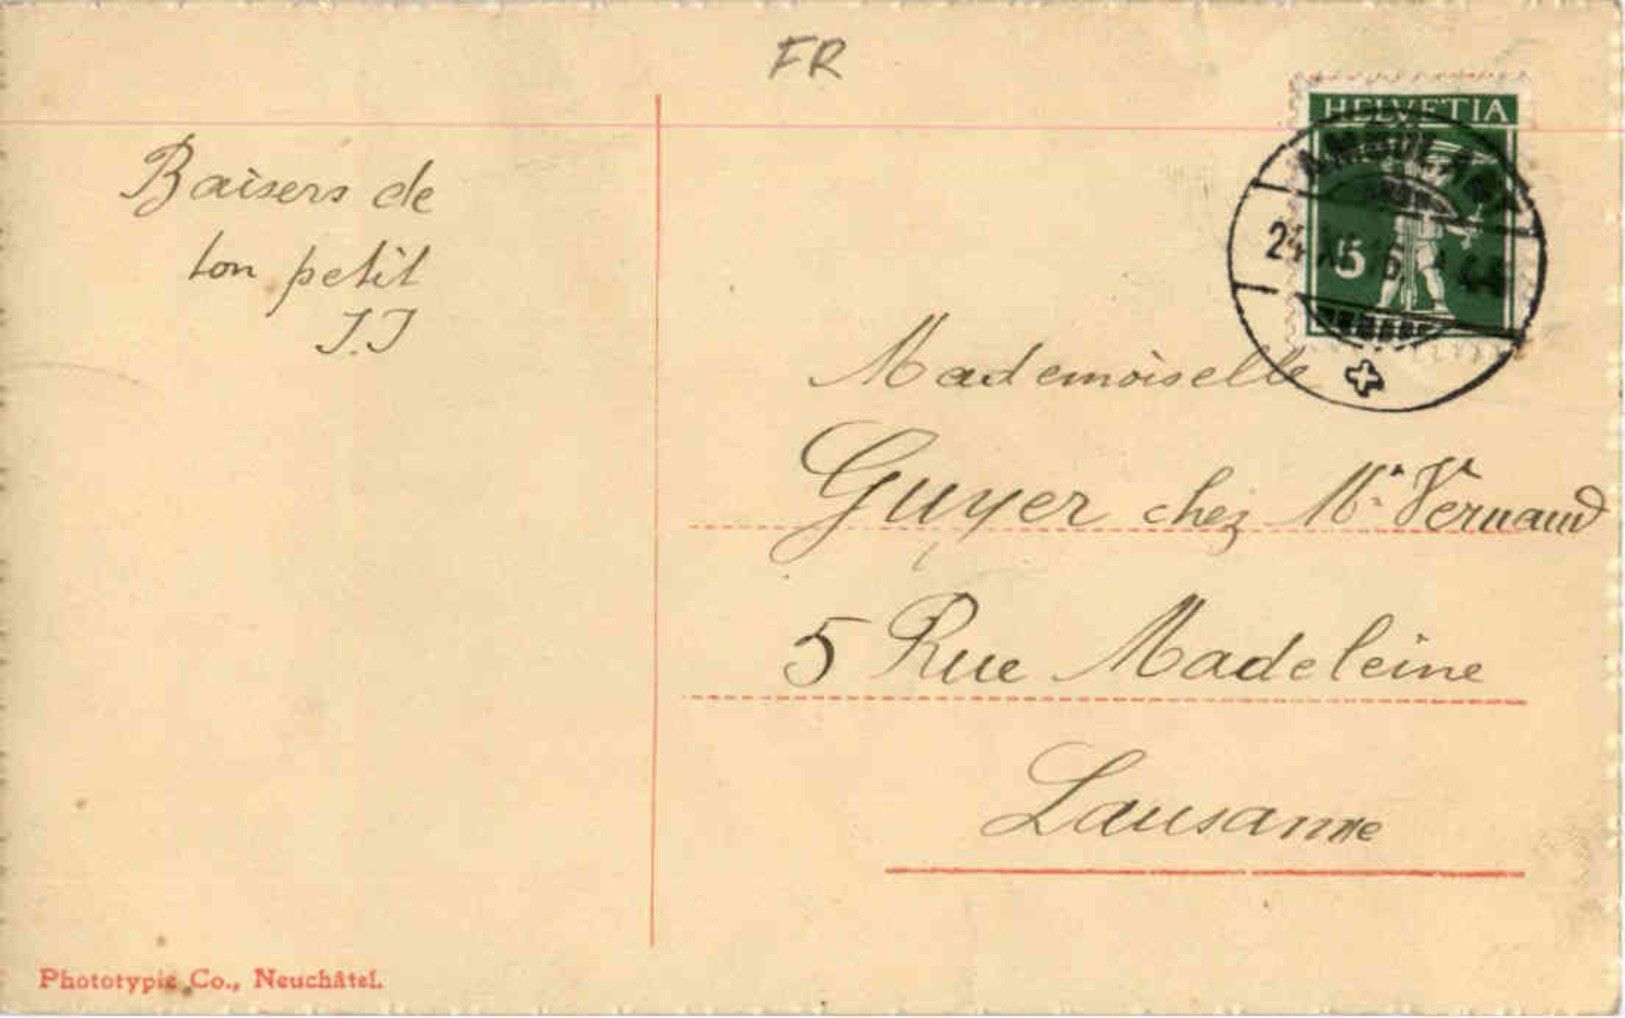 FR
HELVETIA
5
Baisers de
ton petit
J.J
Mademoiselle
Guyer chez Mr Vernaud
5 Rue Madeleine
Lausanne
Phototypie Co., Neuchâtel.